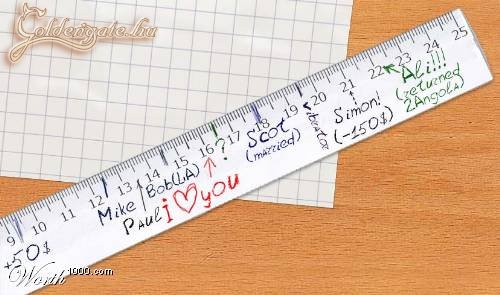 Goldengate.hu
9 10 11 12 13 14 15 16 17 18 19 20 21 22 23 24 25
+50$
Mike
Paul
Bob(LA)
i ♥ you
?
Scot
(married)
vibrator
Simon!
(-150$)
Ali!!!
(returned
2Angola)
Worth1000.com